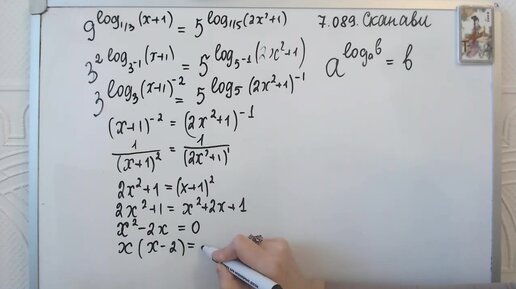 9^{log_{1/3}(x+1)} = 5^{log_{1/5}(2x²+1)}
7.089. Сканави
3^{2 log_{3^{-1}}(x+1)} = 5^{log_{5^{-1}}(2x²+1)}
a^{log_a b} = b
3^{log_3(x+1)^{-2}} = 5^{log_5(2x²+1)^{-1}}
(x+1)^{-2} = (2x²+1)^{-1}
1/(x+1)² = 1/(2x²+1)¹
2x²+1 = (x+1)²
2x²+1 = x²+2x+1
x²-2x = 0
x(x-2) =